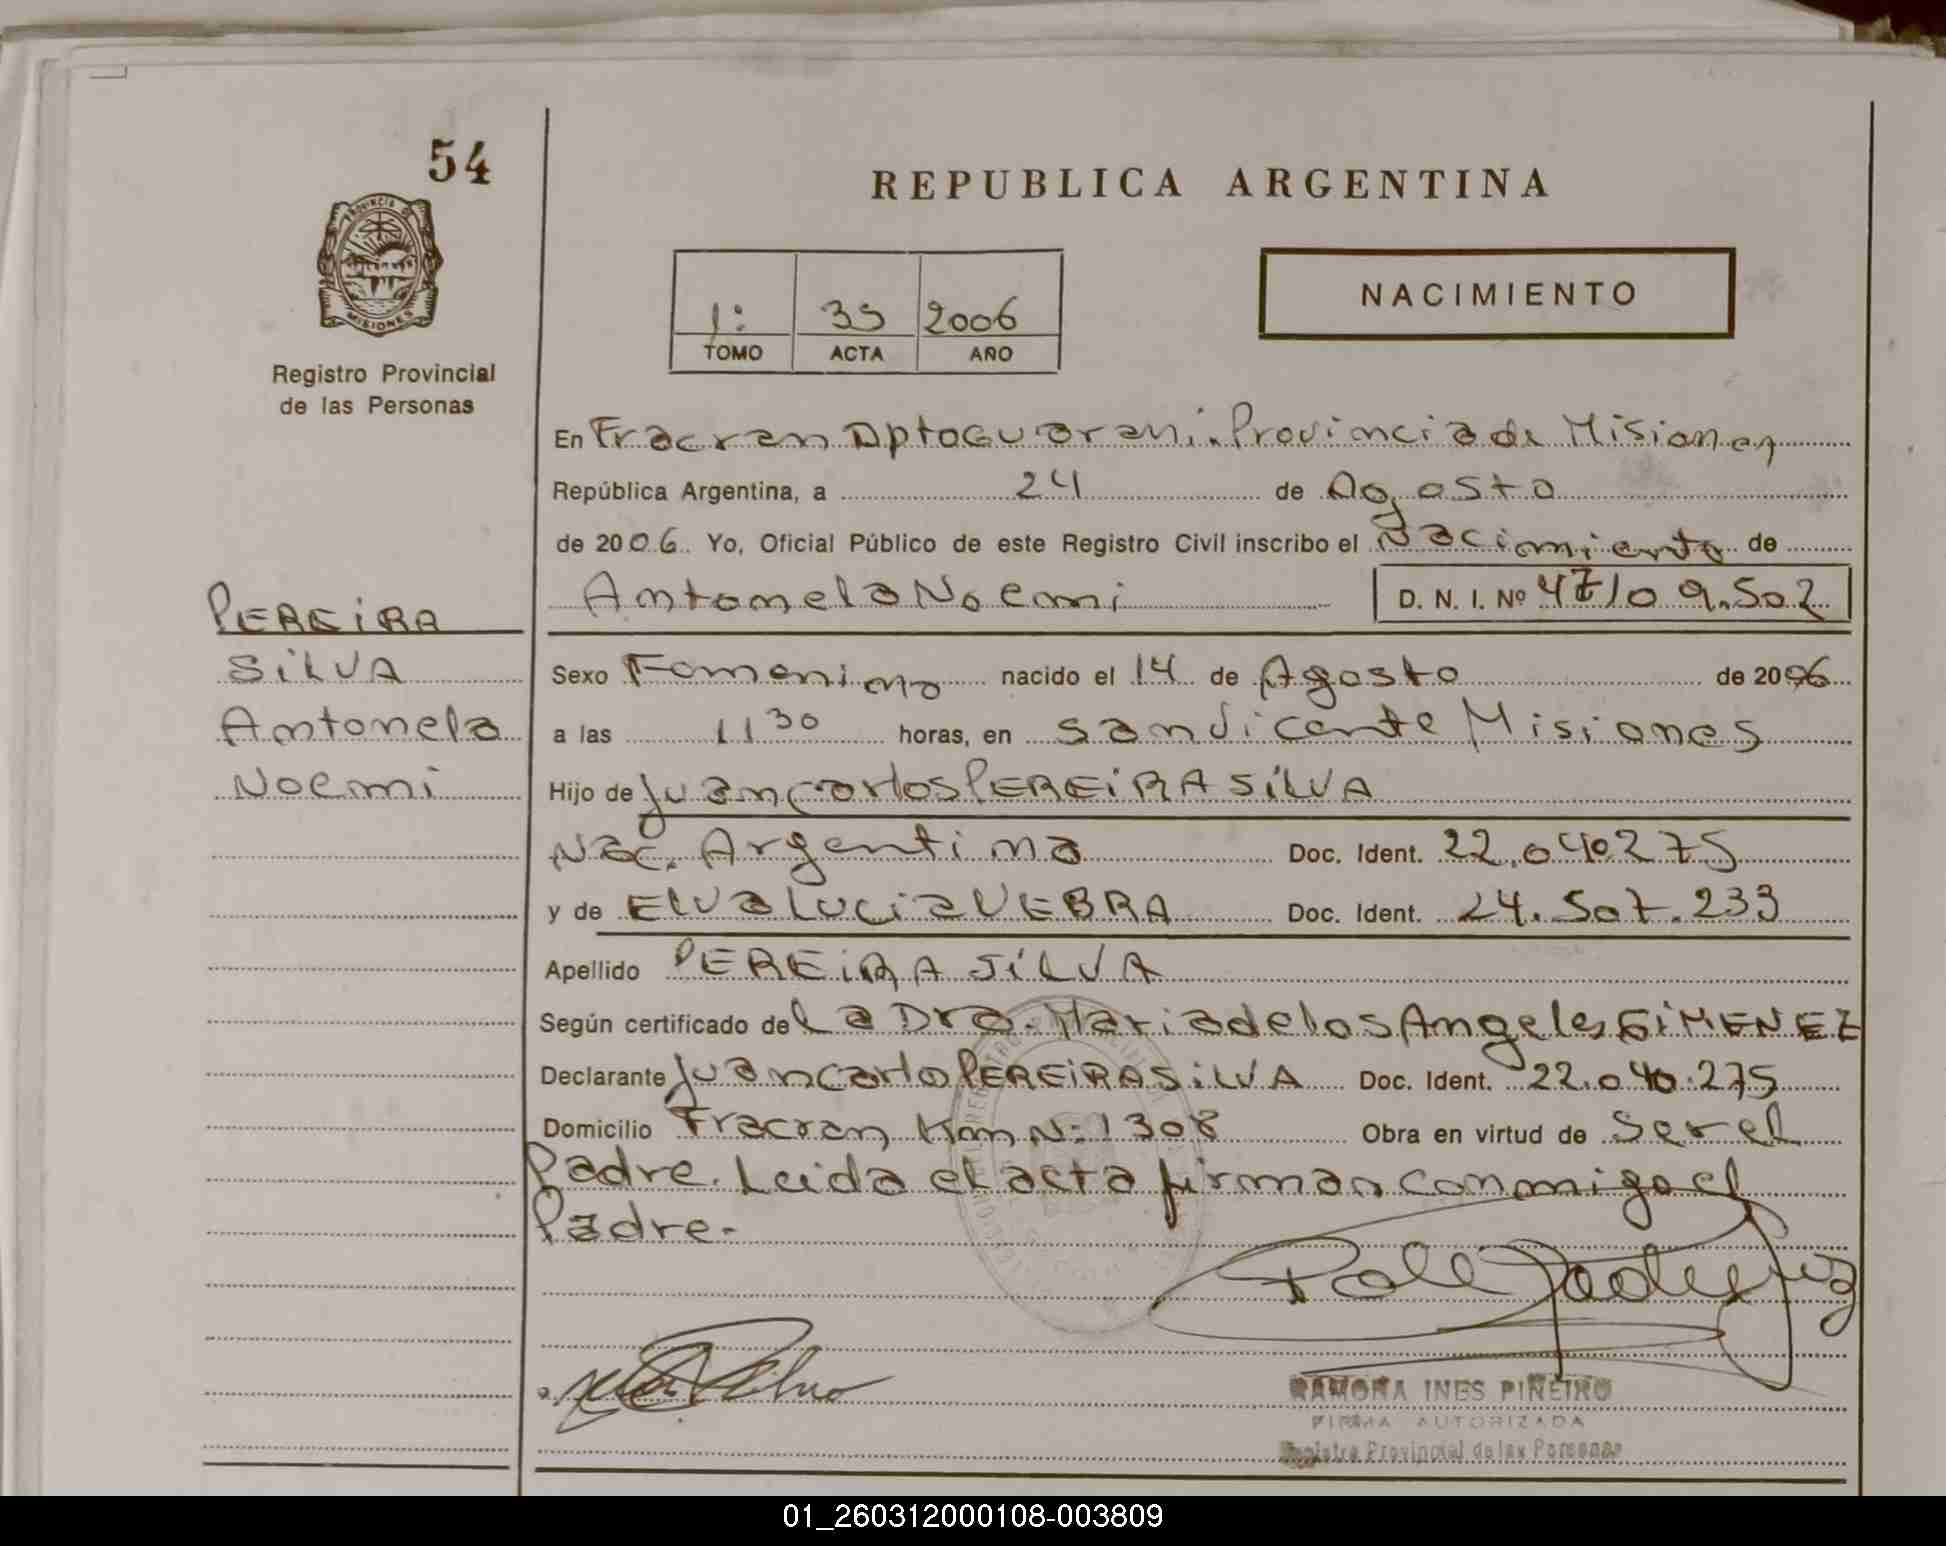 54
PROVINCIA DE
MISIONES
Registro Provincial
de las Personas
REPUBLICA ARGENTINA
1: 39 2006
TOMO ACTA AÑO
NACIMIENTO
En Fracran Dpto Guarani. Provincia de Misiones
República Argentina, a 24 de Agosto
de 2006. Yo, Oficial Público de este Registro Civil inscribo el Nacimiento de
Antonela Noemi D. N. I. Nº 47109.502
PEREIRA
SILVA
Antonela
Noemi
Sexo Femenino nacido el 14 de Agosto de 2006
a las 11 30 horas, en San Vicente Misiones
Hijo de Juan Carlos PEREIRA SILVA
Nac. Argentina Doc. Ident. 22.040275
y de Elva Lucia VEBRA Doc. Ident. 24.507.233
Apellido PEREIRA SILVA
Según certificado de La Dra. Maria de los Angeles GIMENEZ
Declarante Juan Carlo PEREIRA SILVA Doc. Ident. 22.040.275
Domicilio Fracran Km N: 1308 Obra en virtud de Ser el
Padre. Leida el acta firman conmigo el
Padre.-
RAMONA INES PIÑEIRO
FIRMA AUTORIZADA
Registro Provincial de las Personas
01_260312000108-003809